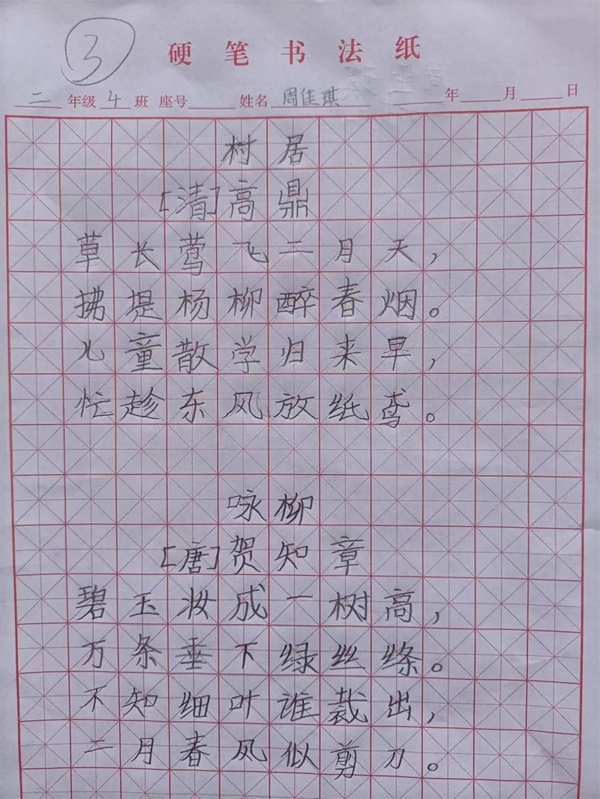 3
硬笔书法纸
二年级4班 座号 姓名 周佳琪 年 月 日
村居
[清]高鼎
草长莺飞二月天，
拂提杨柳醉春烟。
儿童散学归来早，
忙趁东风放纸鸢。
咏柳
[唐]贺知章
碧玉妆成一树高，
万条垂下绿丝绦。
不知细叶谁裁出，
二月春风似剪刀。